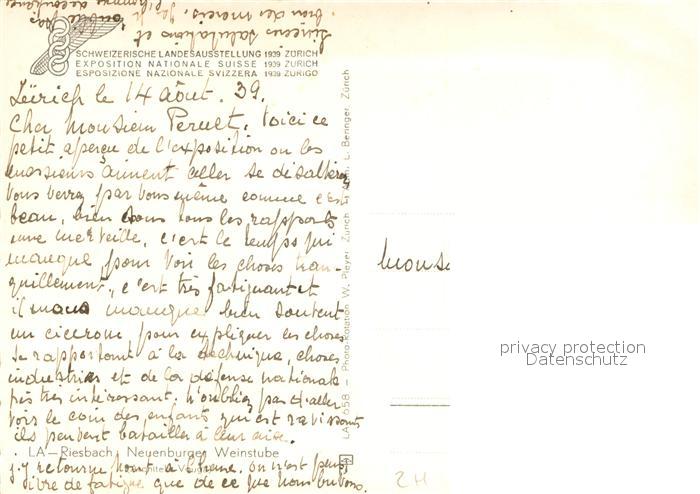 SCHWEIZERISCHE LANDESAUSSTELLUNG 1939 ZÜRICH
EXPOSITION NATIONALE SUISSE 1939 ZURICH
ESPOSIZIONE NAZIONALE SVIZZERA 1939 ZURIGO
Zürich le 14 Août. 39.
Cher Monsieur Perret. Voici ce
petit aperçu de l'exposition ou les
messieurs aiment aller se désaltérer
Vous verrez par vous même comme c'est
beau, bien sous tous les rapports
une merveille, c'est le temps qui
manque, pour voir les choses tran-
quillement, c'est très fatiguant et
il nous manque bien souvent
un cicerone pour expliquer les choses
se rapportant à la technique, choses
industries et de la défense nationale
très intéressant. n'oubliez pas d'aller
voir le coin des enfants qui est ravissant
ils peuvent batailler à leur aise.
LA—Riesbach Neuenburger Weinstube
j'y retourne on n'est plus
ivre de fatigue que de ce que nous buvons.
sincères salutations et
LA 658 — Photo-Kolorit W. Pleyer, Zürich L. Beringer, Zürich
Monsi
privacy protection
Datenschutz
2H